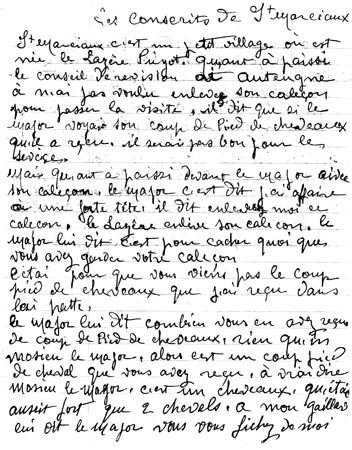 Les conscrits de St Marciaux
St Marciaux c'est un petit village où est
née le Lazère Piryot. Quyant à paissi
le conseil de revision à autengnie
à mai pas voulu enlever son caleçon
pour passer la visite, il dit que si le
major voyait son coup de Pied de chevaeaux
qu'ile a reçu. il serais pas bon pour le
service.
Mais quant à paissi devant le major avec
son caleçon. le major c'est dit j'ai affaire
a une forte tête, il dit enlevez moi ce
calecon. le Lazère enlève son caleçon. le
major lui dit c'est pour cacher quoi que
vous avez garder votre caleçon
c'étai pour que vous viens pas le coup
pied de cheveaux que j'ai reçu dans
lai patte,
le major lui dit combien vous en avez reçu
de coup de Pied de cheveaux, rien qu'un
mosieu le major, alors c'est un coup pied
de cheval que vous avez reçu, à vrai dire
mosieu le major, c'est un cheveaux, qu'étai
aussit fort que 2 chevals, a mon gaillard
lui dit le major vous vous fichez de moi